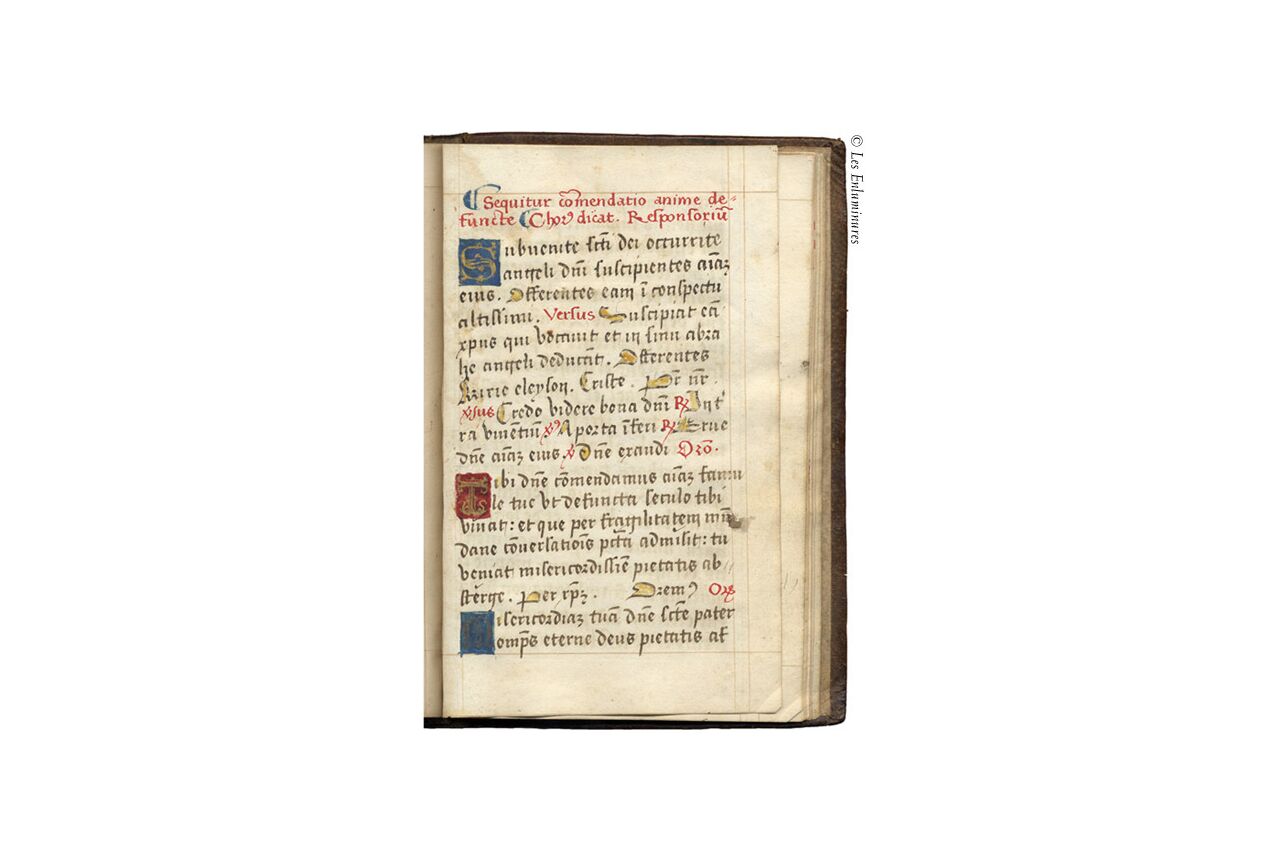 Sequitur cōmendatio anime de-
functe Chorꝰ dicat. Responsoriū
Subuenite scti dei occurrite
angeli dni suscipientes aīaz
eius. Offerentes eam ī conspectu
altissimi. Versus Suscipiat eā
xpus qui vocauit et in sinu abra
he angeli deducāt. Offerentes
Kirie eleyson. Criste. Pr̄ nr̄.
Credo videre bona dnī ℟ In t'
ra viuentiū ℣ A porta īferi ℟ Erue
dn̄e aīaz eius ℣ Dn̄e exaudi Orō.
Tibi dn̄e cōmendamus aīaz famu
le tue vt defuncta seculo tibi
viuat: et que per fragilitatem mū
dane cōuersatiōis pctā admisit: tu
veniat misericordissīe pietatis ab
sterge. Per xp̄z. Oremꝰ Orō
Misericordiaz tuā dn̄e scte pater
omps eterne deus pietatis af
© Les Enluminures